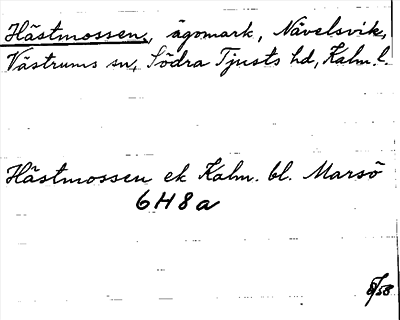 Hästmossen, ägomark, Nävelsvik,
Västrums sn, Södra Tjusts hd, Kalm. l.
Hästmossen ek Kalm. bl. Marsö
6H8a
8/58